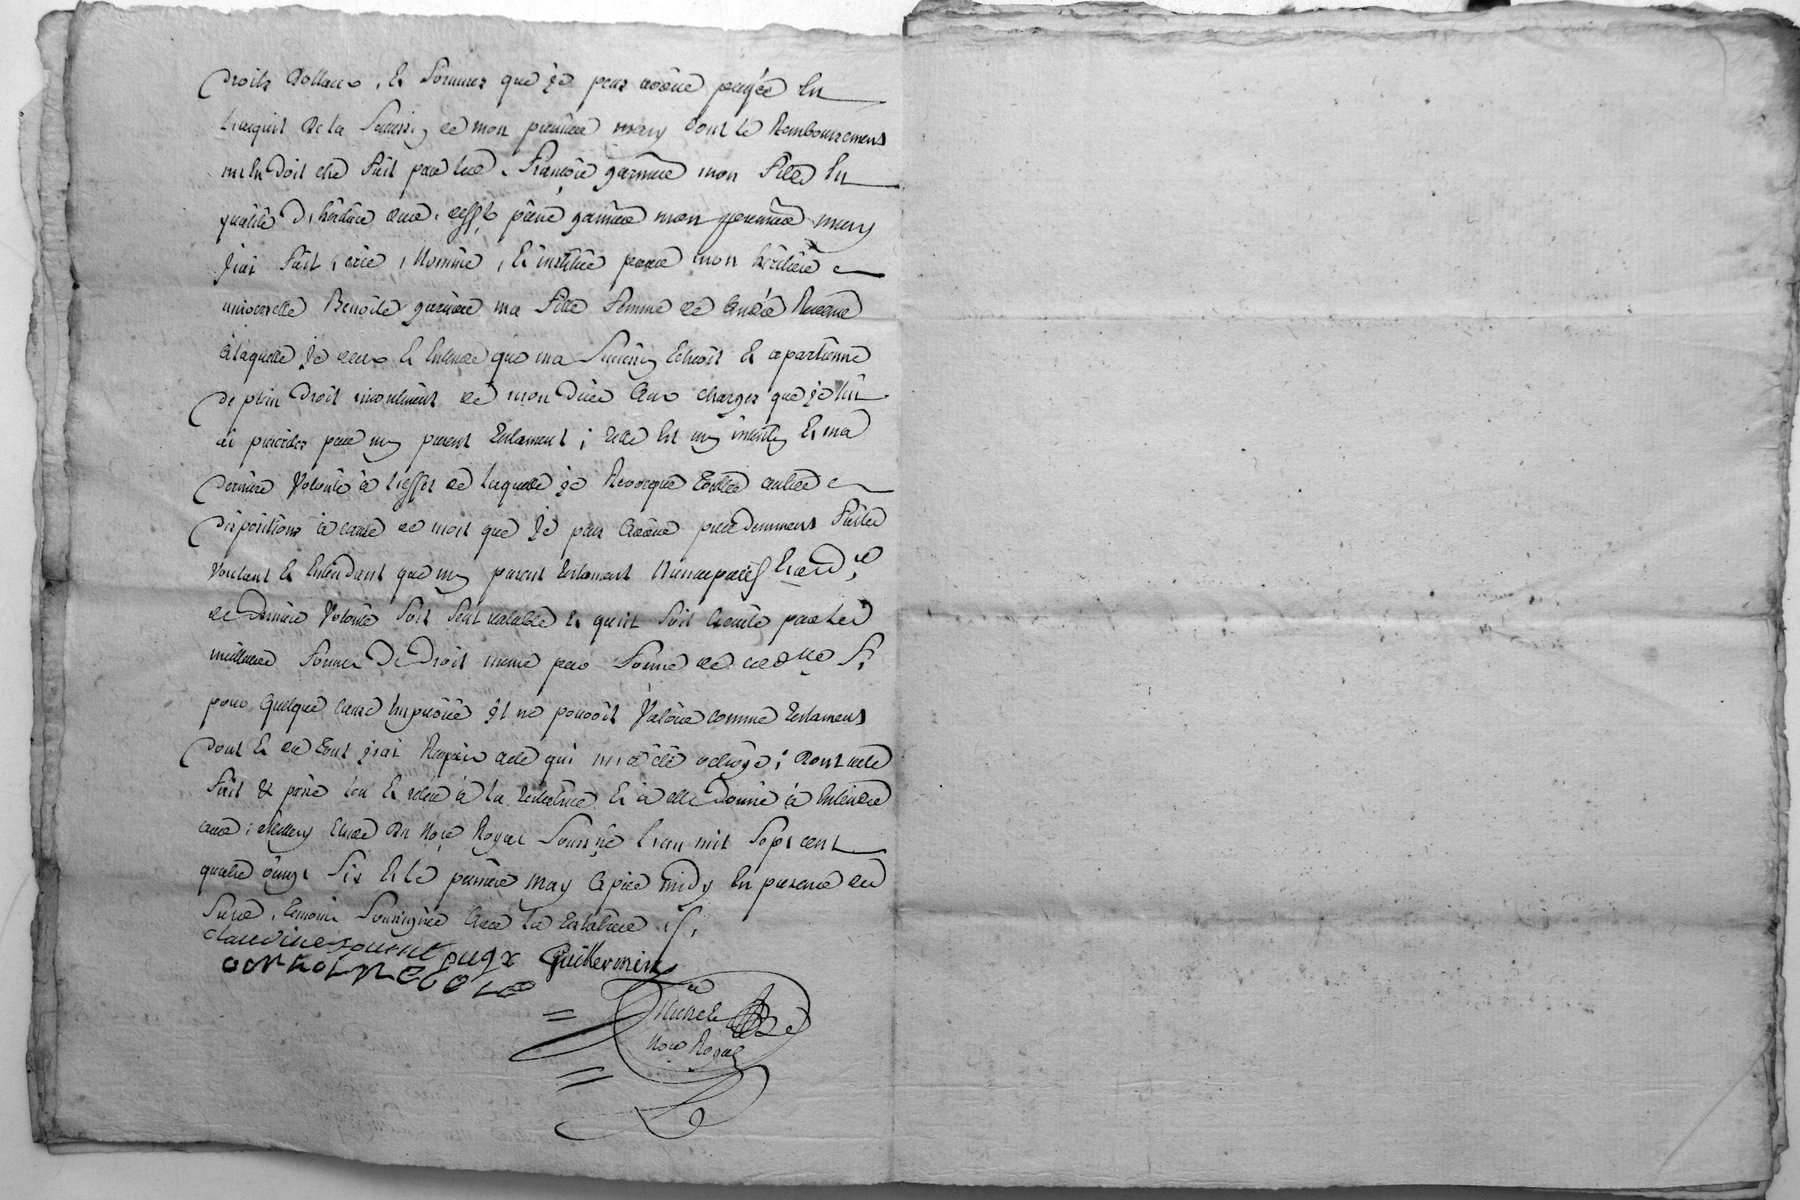 Droits dottaux, Et sommes que je peux avoir payée En
lacquit de la Succession de mon premier mary dont le Remboursement
m'en doit etre fait par led. François garnier mon fils En
qualité d'héritier dud. deffunt pierre garnier mon premier mary
j'iai fait, créé, Nommé, Et institué pour mon héritière
universelle Benoite garnier ma fille femme de André
à laquelle je veux Et Entend que ma Succession Echoit Et apartienne
de plein droit incontinent de mon décé aux charges que je lui
ai par mon present testament; telle Est mon intention Et ma
derniere Volonté à l'effet de laquelle je Revocque toutes autres
dispositions à cause de mort que je peux avoir precedemment faites
Voulant Et Entendant que mon present testament
de derniere Volonté soit seul valable Et qu'il soit Exécuté par les
meilleures formes De Droit meme par forme de codicile Si
pour quelque cause impreuve il ne pouvoit Valoir comme testament
dont Et du tout j'iai Requis acte qui m'a été octroyé; dont acte
fait & passé leu Et relu à la testatrice Et à elle donné à Entendre
Etude du Nore Royal Soussigné L'an mil Sept cent
quatre vingt Six Et le premier may après midy En presence des
temoins Soussignés avec la testatrice
claudine pugx Guillermin

Nore Royal